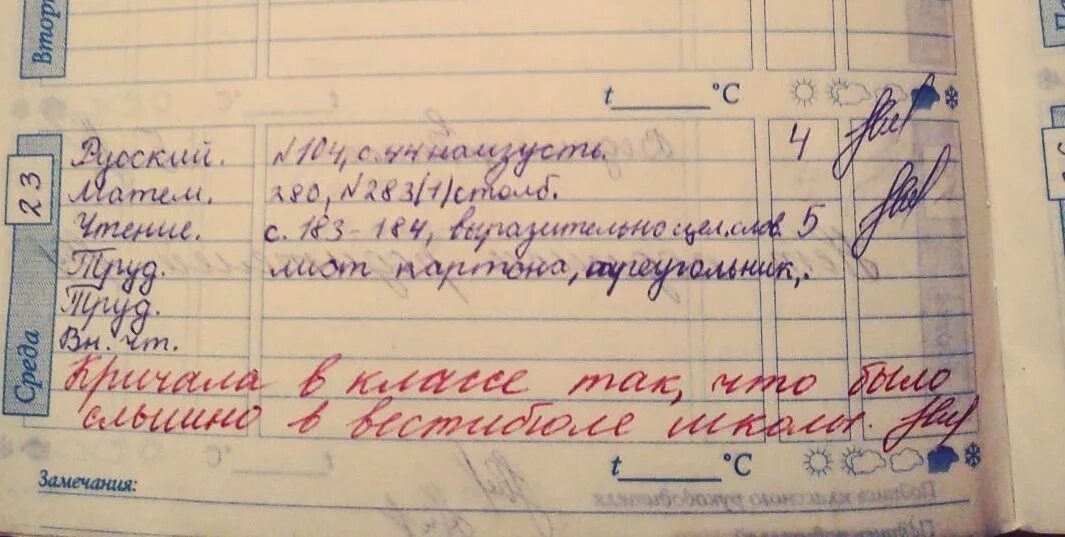 Втор
t ______ °C
23
Среда
Русский. №104, с.44 наизусть. 4
Матем. 280, №283(1) столб.
Чтение. с. 183-184, выразительно цел. слов. 5
Труд. лист картона, треугольник,.
Труд.
Вн. чт.
Кричала в классе так, что было
слышно в вестибюле школы.
t ______ °C
Замечания: